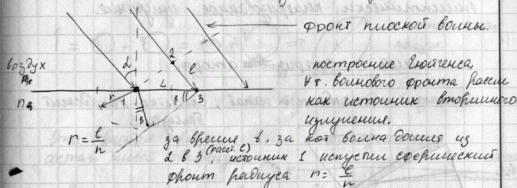 фронт плоской волны.
воздух
построение Гюйгенса,
∀ т. волнового фронта рассм
как источник вторичного
излучения.
α
2
l
n₂
r
1
3
β
r = l/n
за время t, за кот волна дошла из
2 в 3 (расст. l), источник 1 испустил сферический
фронт радиуса r = l/n